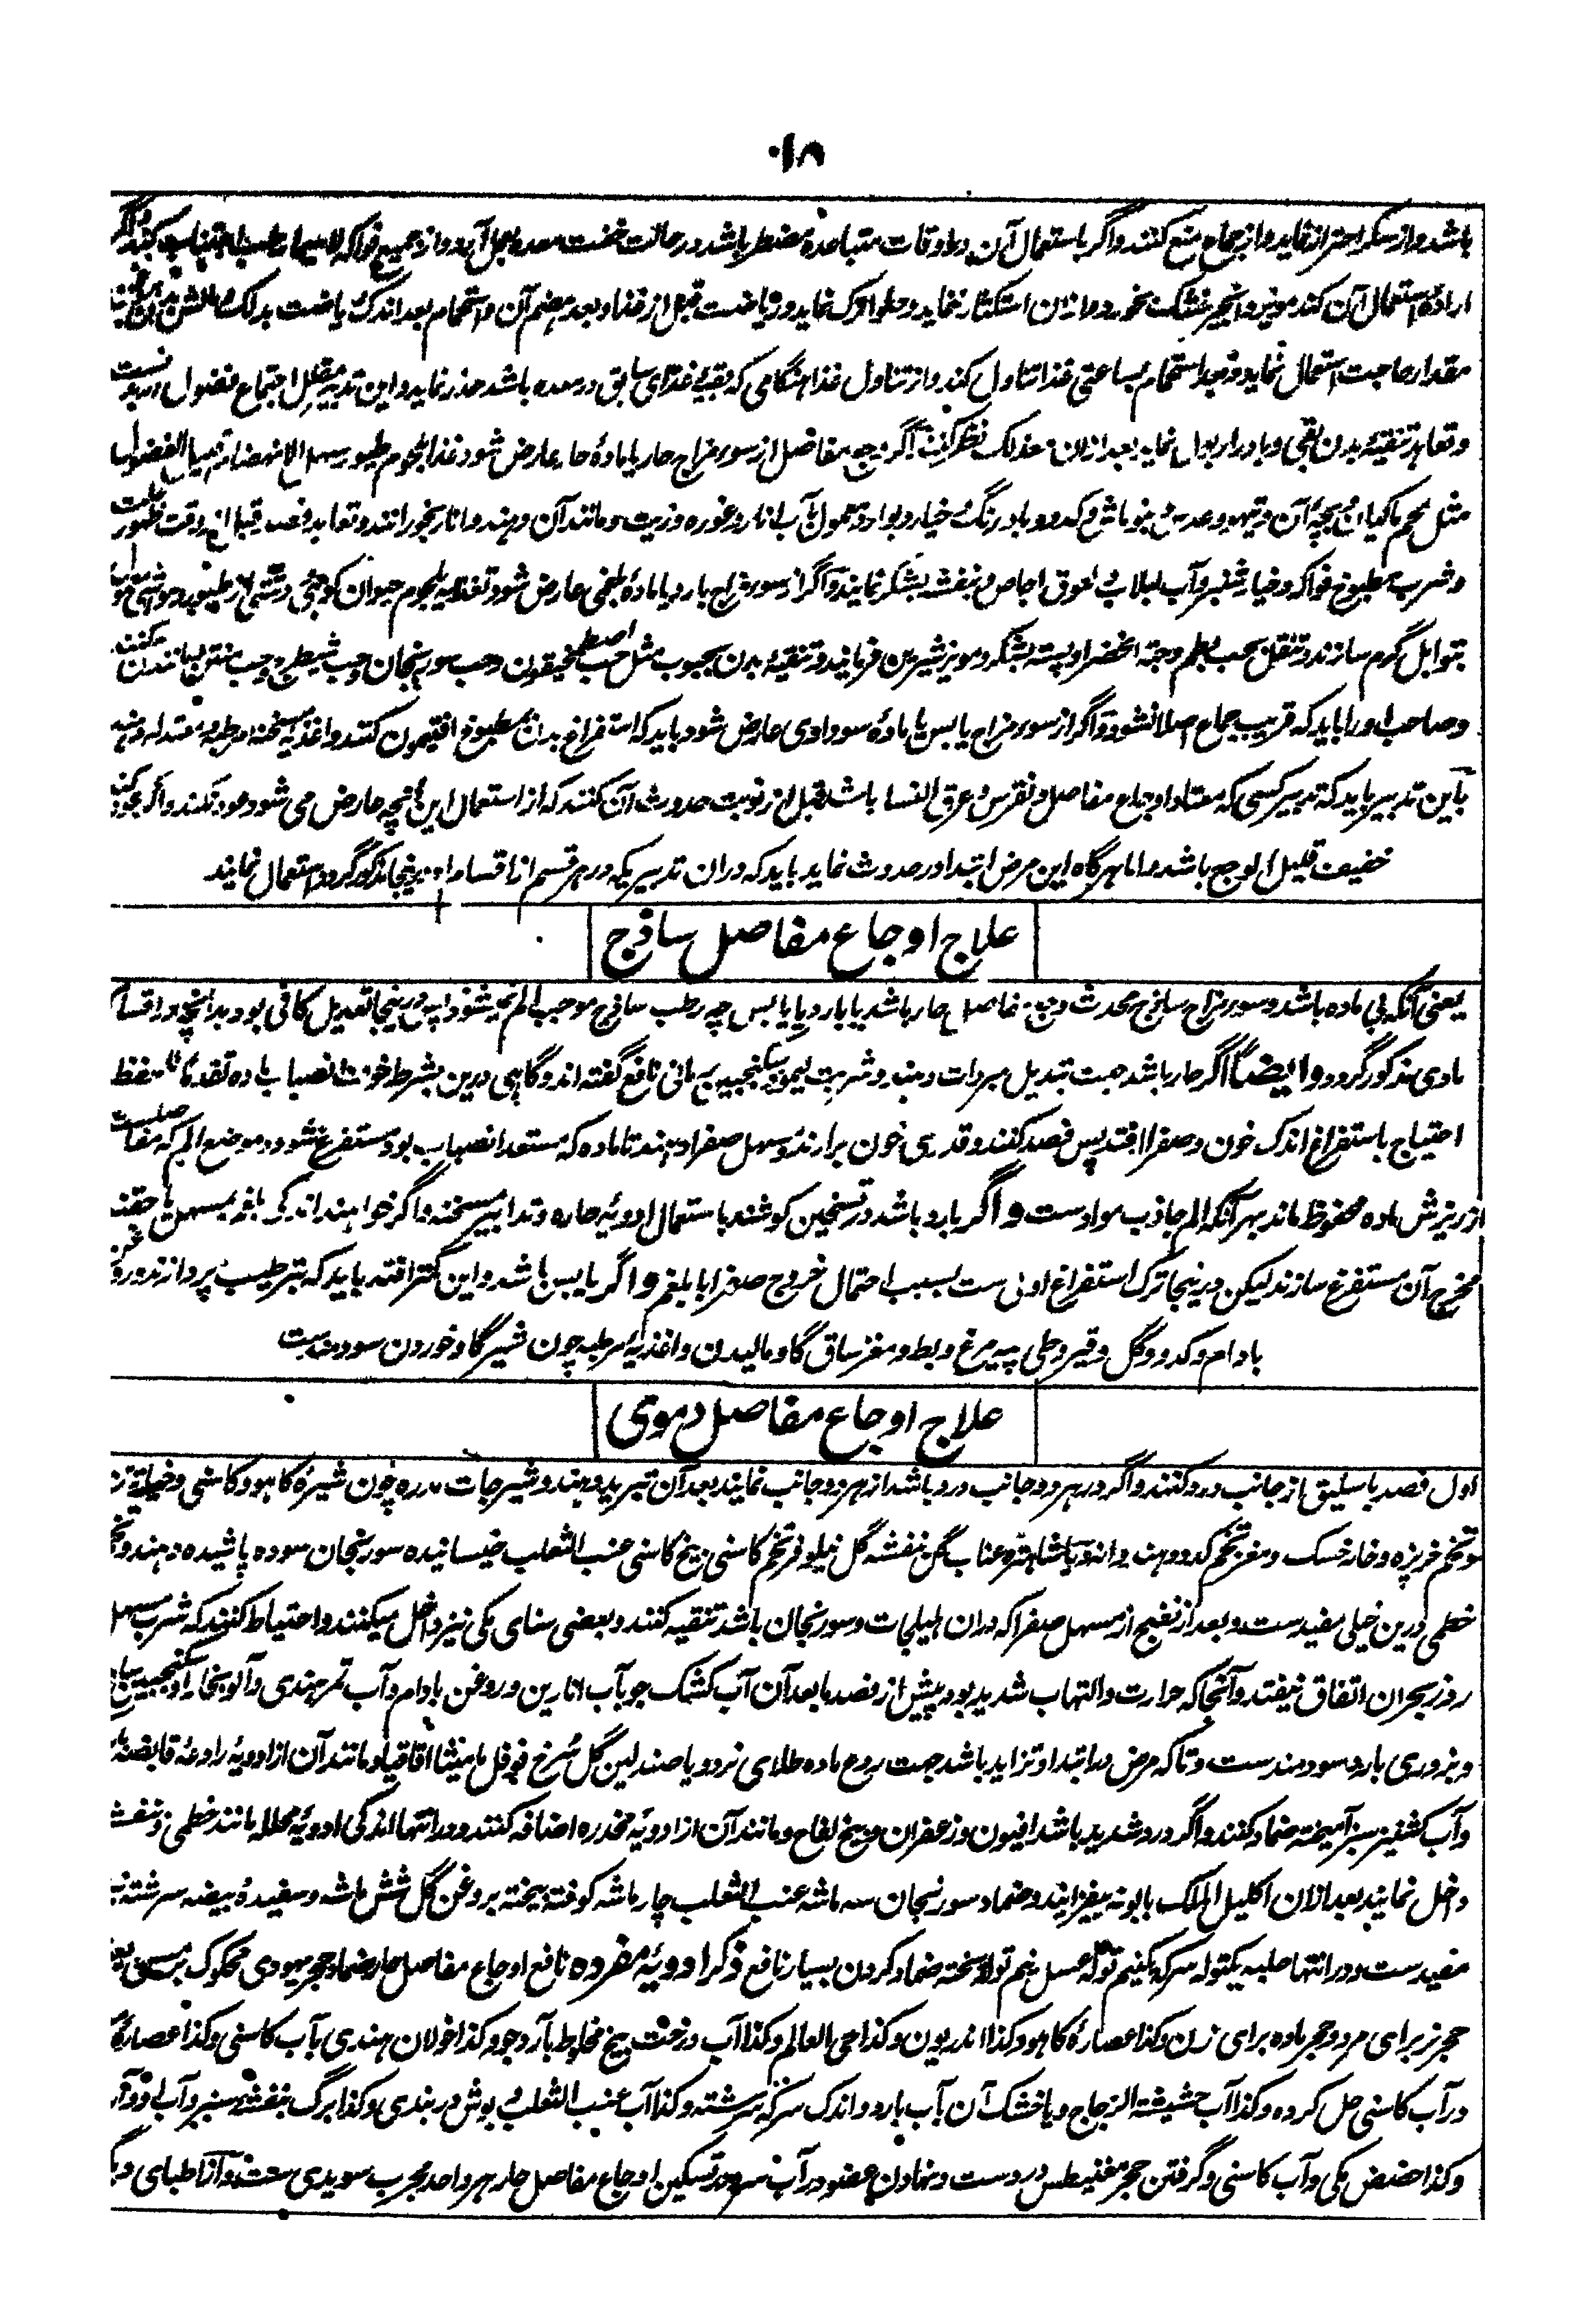 باشد و از سکر احتراز نماید و از جماع منع کنند و اگر باستعمال آن در اوقات متباعده مضطر باشد در حالت خفت معده بعمل آرد و از جمیع فواکه لاسیما رطب اجتناب کند و اگر
ارادهٔ استعمال آن کند مویز و انجیر خشک بخورد و ازان استکثار ننماید و حلوا ترک نماید و ریاضت قبل از غذا و بعد هضم آن و استحمام بعد اندک ریاضت بدلک
مقدار حاجت استعمال نماید و بعد استحمام بساعتی غذا تناول کند و از تناول غذا هنگامی که بقیهٔ غذای سابق در معده باشد حذر نماید و این تدبیر مقلل اجتماع فضول
و تعاهد تنقیهٔ بدن بقی و بادرار بول نماید بعد ازان نظر کنند اگر وجع مفاصل از سوء مزاج حار یا مادهٔ حار عارض شود غذا بلحوم طیور سهل الانهضام
مثل لحم ماکیان و بچهٔ آن و تیهو و عدس و بنوماش و کدو و بادرنگ و خیار و بوارد معمول بآب انار و غوره و زیت و مانند آن و هندوانه بخورانند و تعاهد فصد قبل از وقت ظهور علت
و شرب مطبوخ فواکه و خیارشنبر و آب لبلاب و لعوق اجاص و بنفشه بشکر نمایند و اگر از سوء مزاج بارد یا مادهٔ بلغمی عارض شود تغذیه بلحوم حیوان کوهی و دشتی از طیور و مواشی
بتوابل گرم سازند و تنقل بحب بطم و حبة الخضرا و پسته بشکر و مویز شیرین فرمایند و تنقیهٔ بدن بحبوب مثل حب اصطمخیقون و حب سورنجان و حب شیطرج و حب منتن و مانند آن کنند
و صاحب او را باید که قریب جماع اصلا نشود و اگر از سوء مزاج یابس یا مادهٔ سوداوی عارض شود باید که استفراغ بدن بمطبوخ افتیمون کنند و اغذیهٔ مسخنه مرطبه معتدله دهند
باین تدبیر باید که تدبیر کسی که معتاد اوجاع مفاصل و نقرس و عرق النسا باشد قبل از نوبت حدوث آن کنند که از استعمال این آنچه عارض می شود عود نکند و اگر عود کند
خفیف قلیل الوجع باشد و اما هرگاه این مرض ابتدا و حدوث نماید باید که دران تدبیریکه در هر قسم از اقسام او درینجا مذکور گردد استعمال نمایند
علاج اوجاع مفاصل ساذج
یعنی آنکه بی ماده باشد و سوء مزاج ساذج محدث وجع مفاصل حار باشد یا بارد یا یابس چه رطب ساذج موجب الم نمیشود پس درینجا تعدیل کافی بود بدانچه در اقسام
مادی مذکور گردد و ایضاً اگر حار باشد جهت تبدیل مبردات دهند و شربت لیمو و سکنجبین رمانی نافع گفته اند و گاهی درین بشرط خوف انصباب ماده تقدماً للحفظ
احتیاج باستفراغ اندک خون و صفرا افتد پس فصد کنند و قدری خون برارند و مسهل صفرا دهند تا ماده که مستعد انصباب بود مستفرغ شود و موضع الم که مفاصلست
از ریزش ماده محفوظ ماند بهر آنکه الم جاذب مواد ست و اگر بارد باشد در تسخین کوشند باستعمال ادویهٔ حاره و تدابیر مسخنه و اگر خواهند اندکی بلغم بمسهل یا حقنه
مخرج آن مستفرغ سازند لیکن درینجا ترک استفراغ اولی ست بسبب احتمال خروج صفرا با بلغم و اگر یابس باشد و این کمتر افتد باید که بترطیب پردازند و روغن
بادام و کدو و گل و قیروطی پیه مرغ و بط و مغز ساق گاو مالیدن و اغذیهٔ مرطبه چون شیر گاو خوردن سودمندست
علاج اوجاع مفاصل دموی
اول فصد باسلیق از جانب درد کنند و اگر در هر دو جانب درد باشد از هر دو جانب نمایند بعد آن تبرید دهند و شیرجات مدره چون شیرهٔ کاهو و کاسنی و خیارین
و تخم خرپزه و خارخسک و مغز تخم کدو و هندوانه و یا شاهتره عناب گل بنفشه گل نیلوفر تخم کاسنی بیخ کاسنی عنب الثعلب خیسانیده سورنجان سوده پاشیده دهند و تخم
خطمی درین خیلی مفید ست و بعد از نضج از مسهل صفرا که دران هلیلجات و سورنجان باشد تنقیه کنند و بعضی سنای مکی نیز داخل میکنند و احتیاط کنند که شرب مسهل
روز بحران اتفاق نیفتد و آنجا که حرارت و التهاب شدید بود پیش از فصد یا بعد آن آب کشک جو بآب انارین و روغن بادام و آب تمر هندی و آلو بخارا و سکنجبین
و بزوری بارد سودمندست و تا که مرض در ابتدا و تزاید باشد جهت ردع ماده طلای زرد و یا صندلین گل سرخ فوفل مامیثا اقاقیا و مانند آن از ادویهٔ رادعه قابضه
و آب کشنیز سبز آمیخته ضماد کنند و اگر درد شدید باشد افیون و زعفران و بیخ لفاح و مانند آن از ادویهٔ مخدره اضافه کنند و در انتها اندکی ادویهٔ محلله مانند خطمی و بنفشه
داخل نمایند بعد ازان اکلیل الملک بابونه بیفزایند و ضماد سورنجان سه ماشه عنب الثعلب چار ماشه کوفته بیخته بروغن گل شش ماشه و سفیدهٔ بیضه سرشته
مفیدست و در انتها حلبه یکتوله سرکه یکنیم توله عسل نیم توله پخته ضماد کردن بسیار نافع ذکر ادویهٔ مفرده نافع اوجاع مفاصل حار ضماد حجر یهودی محکوک
حجر نر برای مرد و حجر ماده برای زن و کذا عصارهٔ کاهو و کذا اندریون و کذا حی العالم و کذا آب درخت بیخ مخلوط بآرد جو و کذا خولان هندی بآب کاسنی و کذا عصارهٔ
در آب کاسنی حل کرده و کذا آب حشیشة الزجاج و یا خشک آن بآب بارد و اندک سرکه سرشته و کذا آب عنب الثعلب و بوش دربندی و کذا برگ بنفشهٔ سبز و آب
و کذا حضض مکی و آب کاسنی و گرفتن حجر مغنیطس در دست و نهادن عضو در آب سرد در تسکین اوجاع مفاصل حار هر واحد مجرب سویدی ست و از اطبای